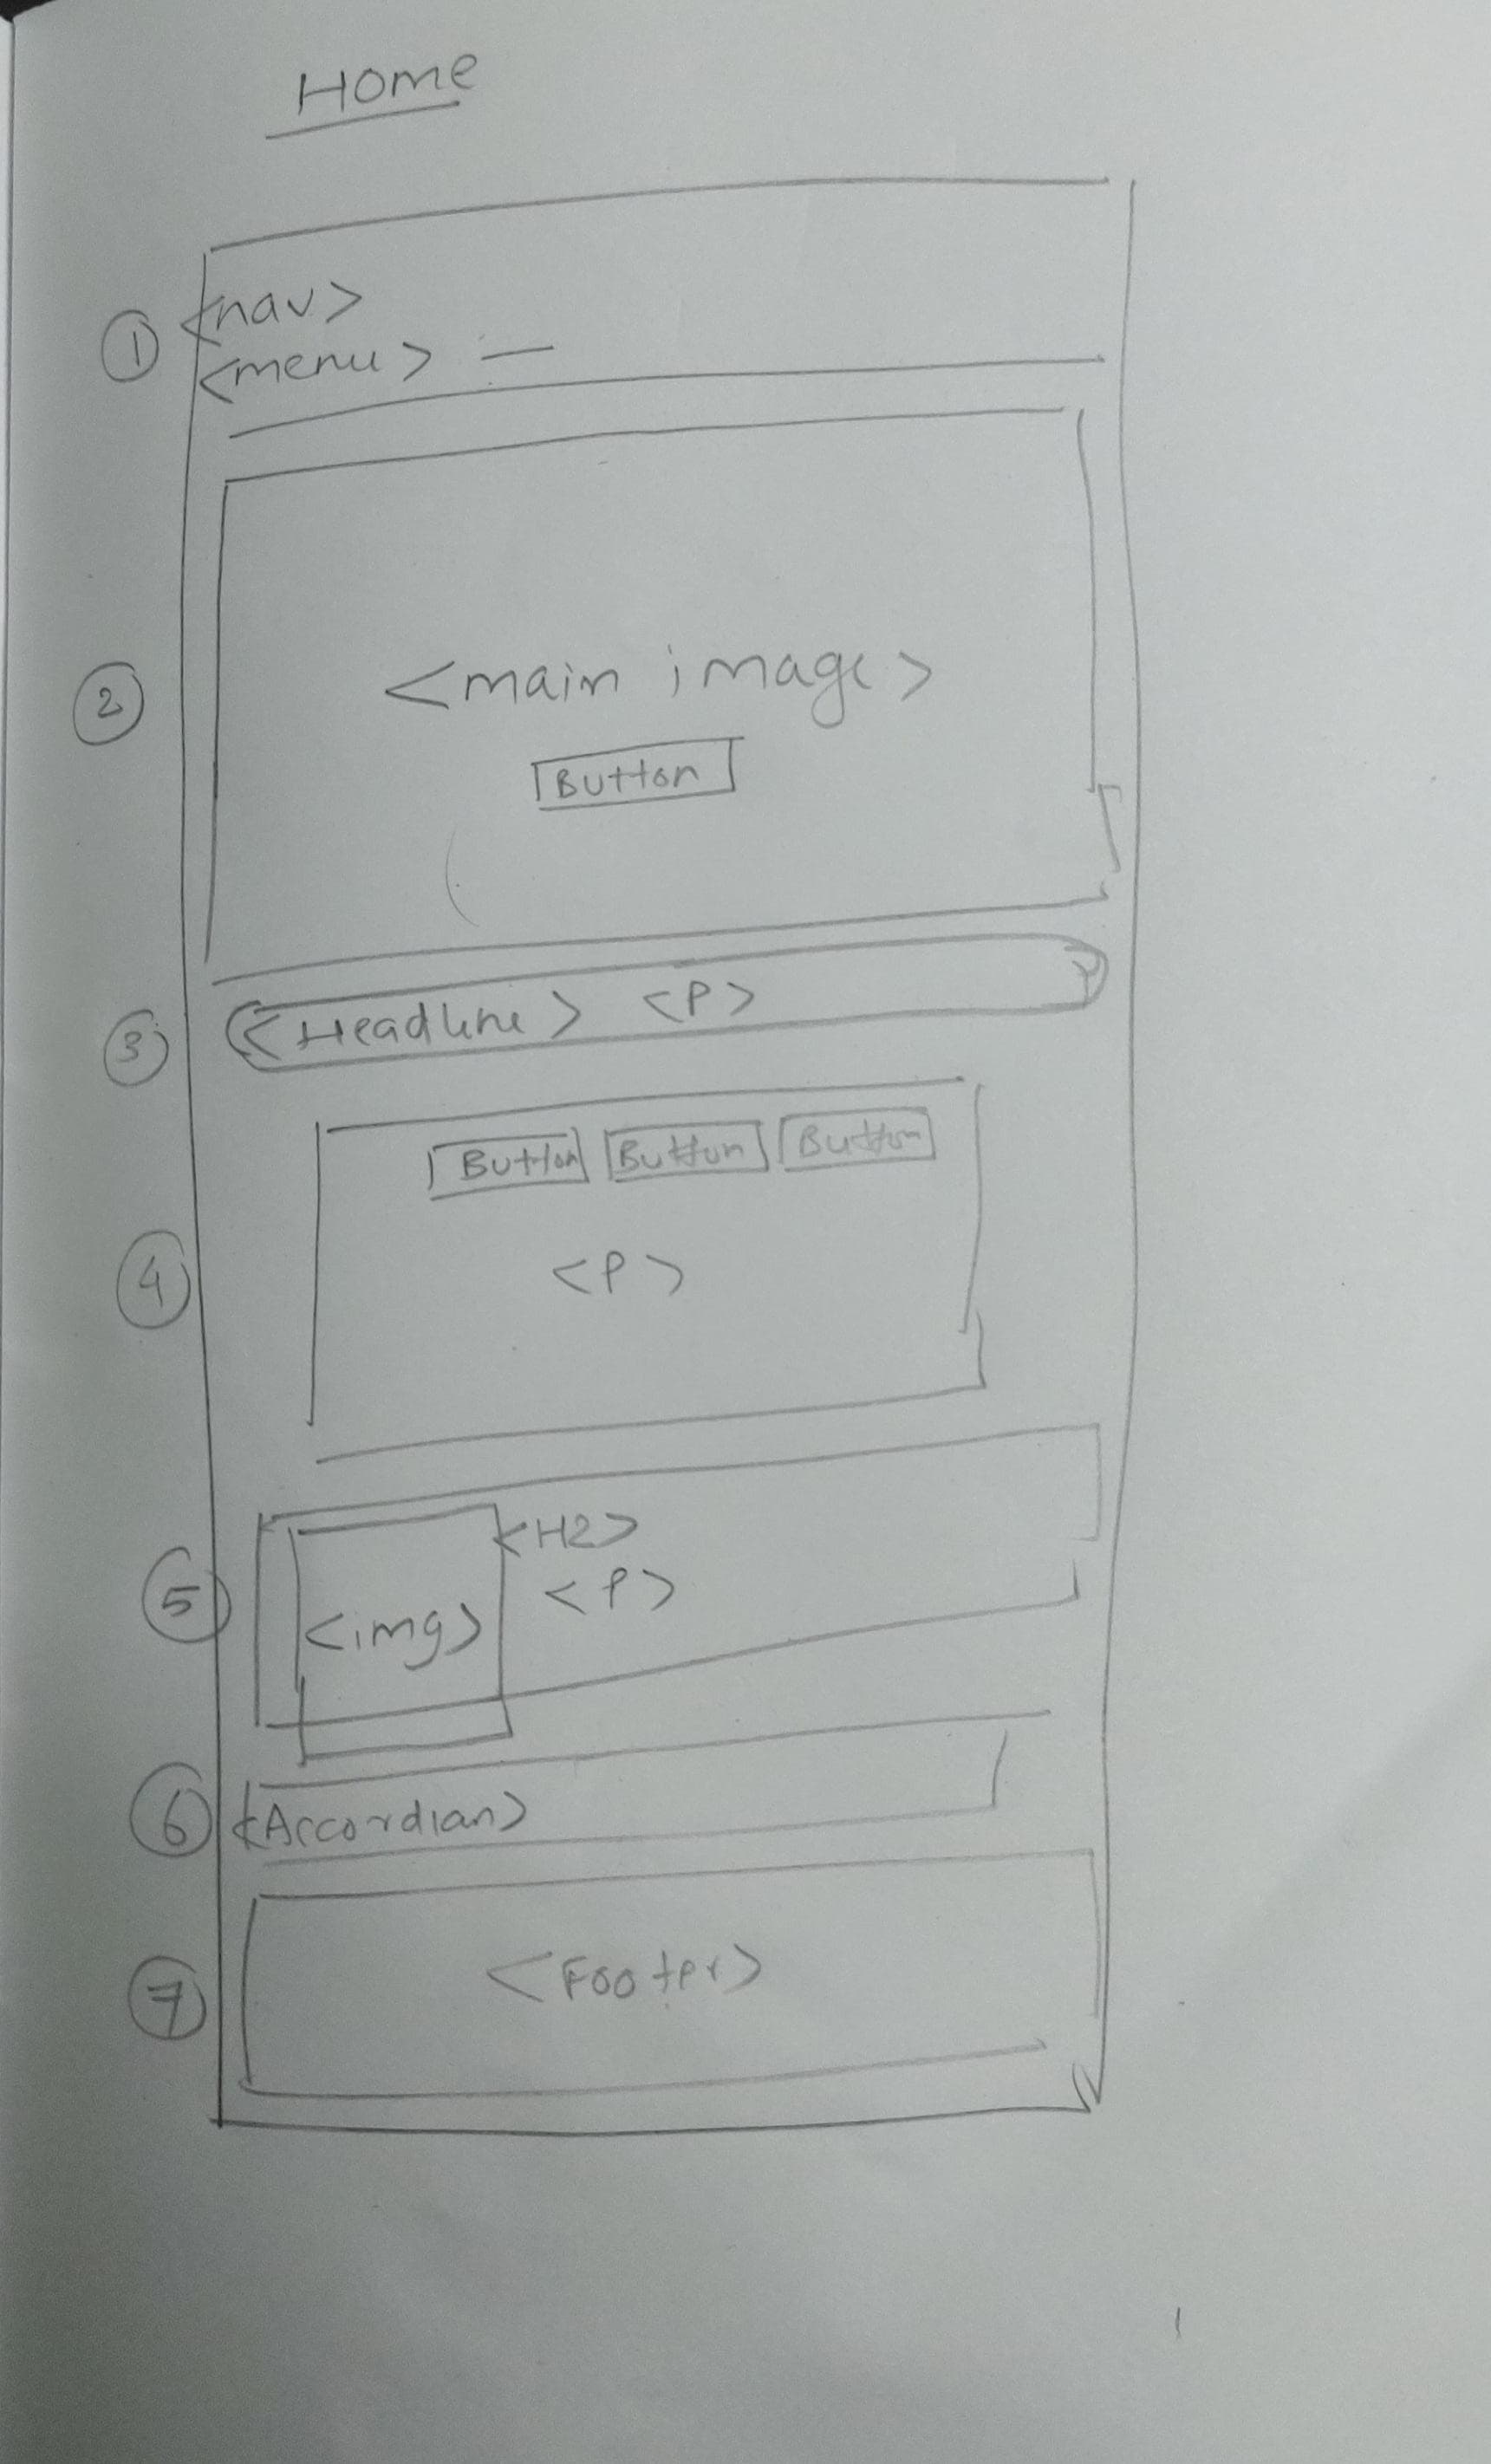 Home
① <nav>
<menu> —
② <main image>
Button
③ <Headline> <P>
Button Button Button
④ <P>
<H2>
⑤ <img> <P>
⑥ <Accordian>
⑦ <Footer>